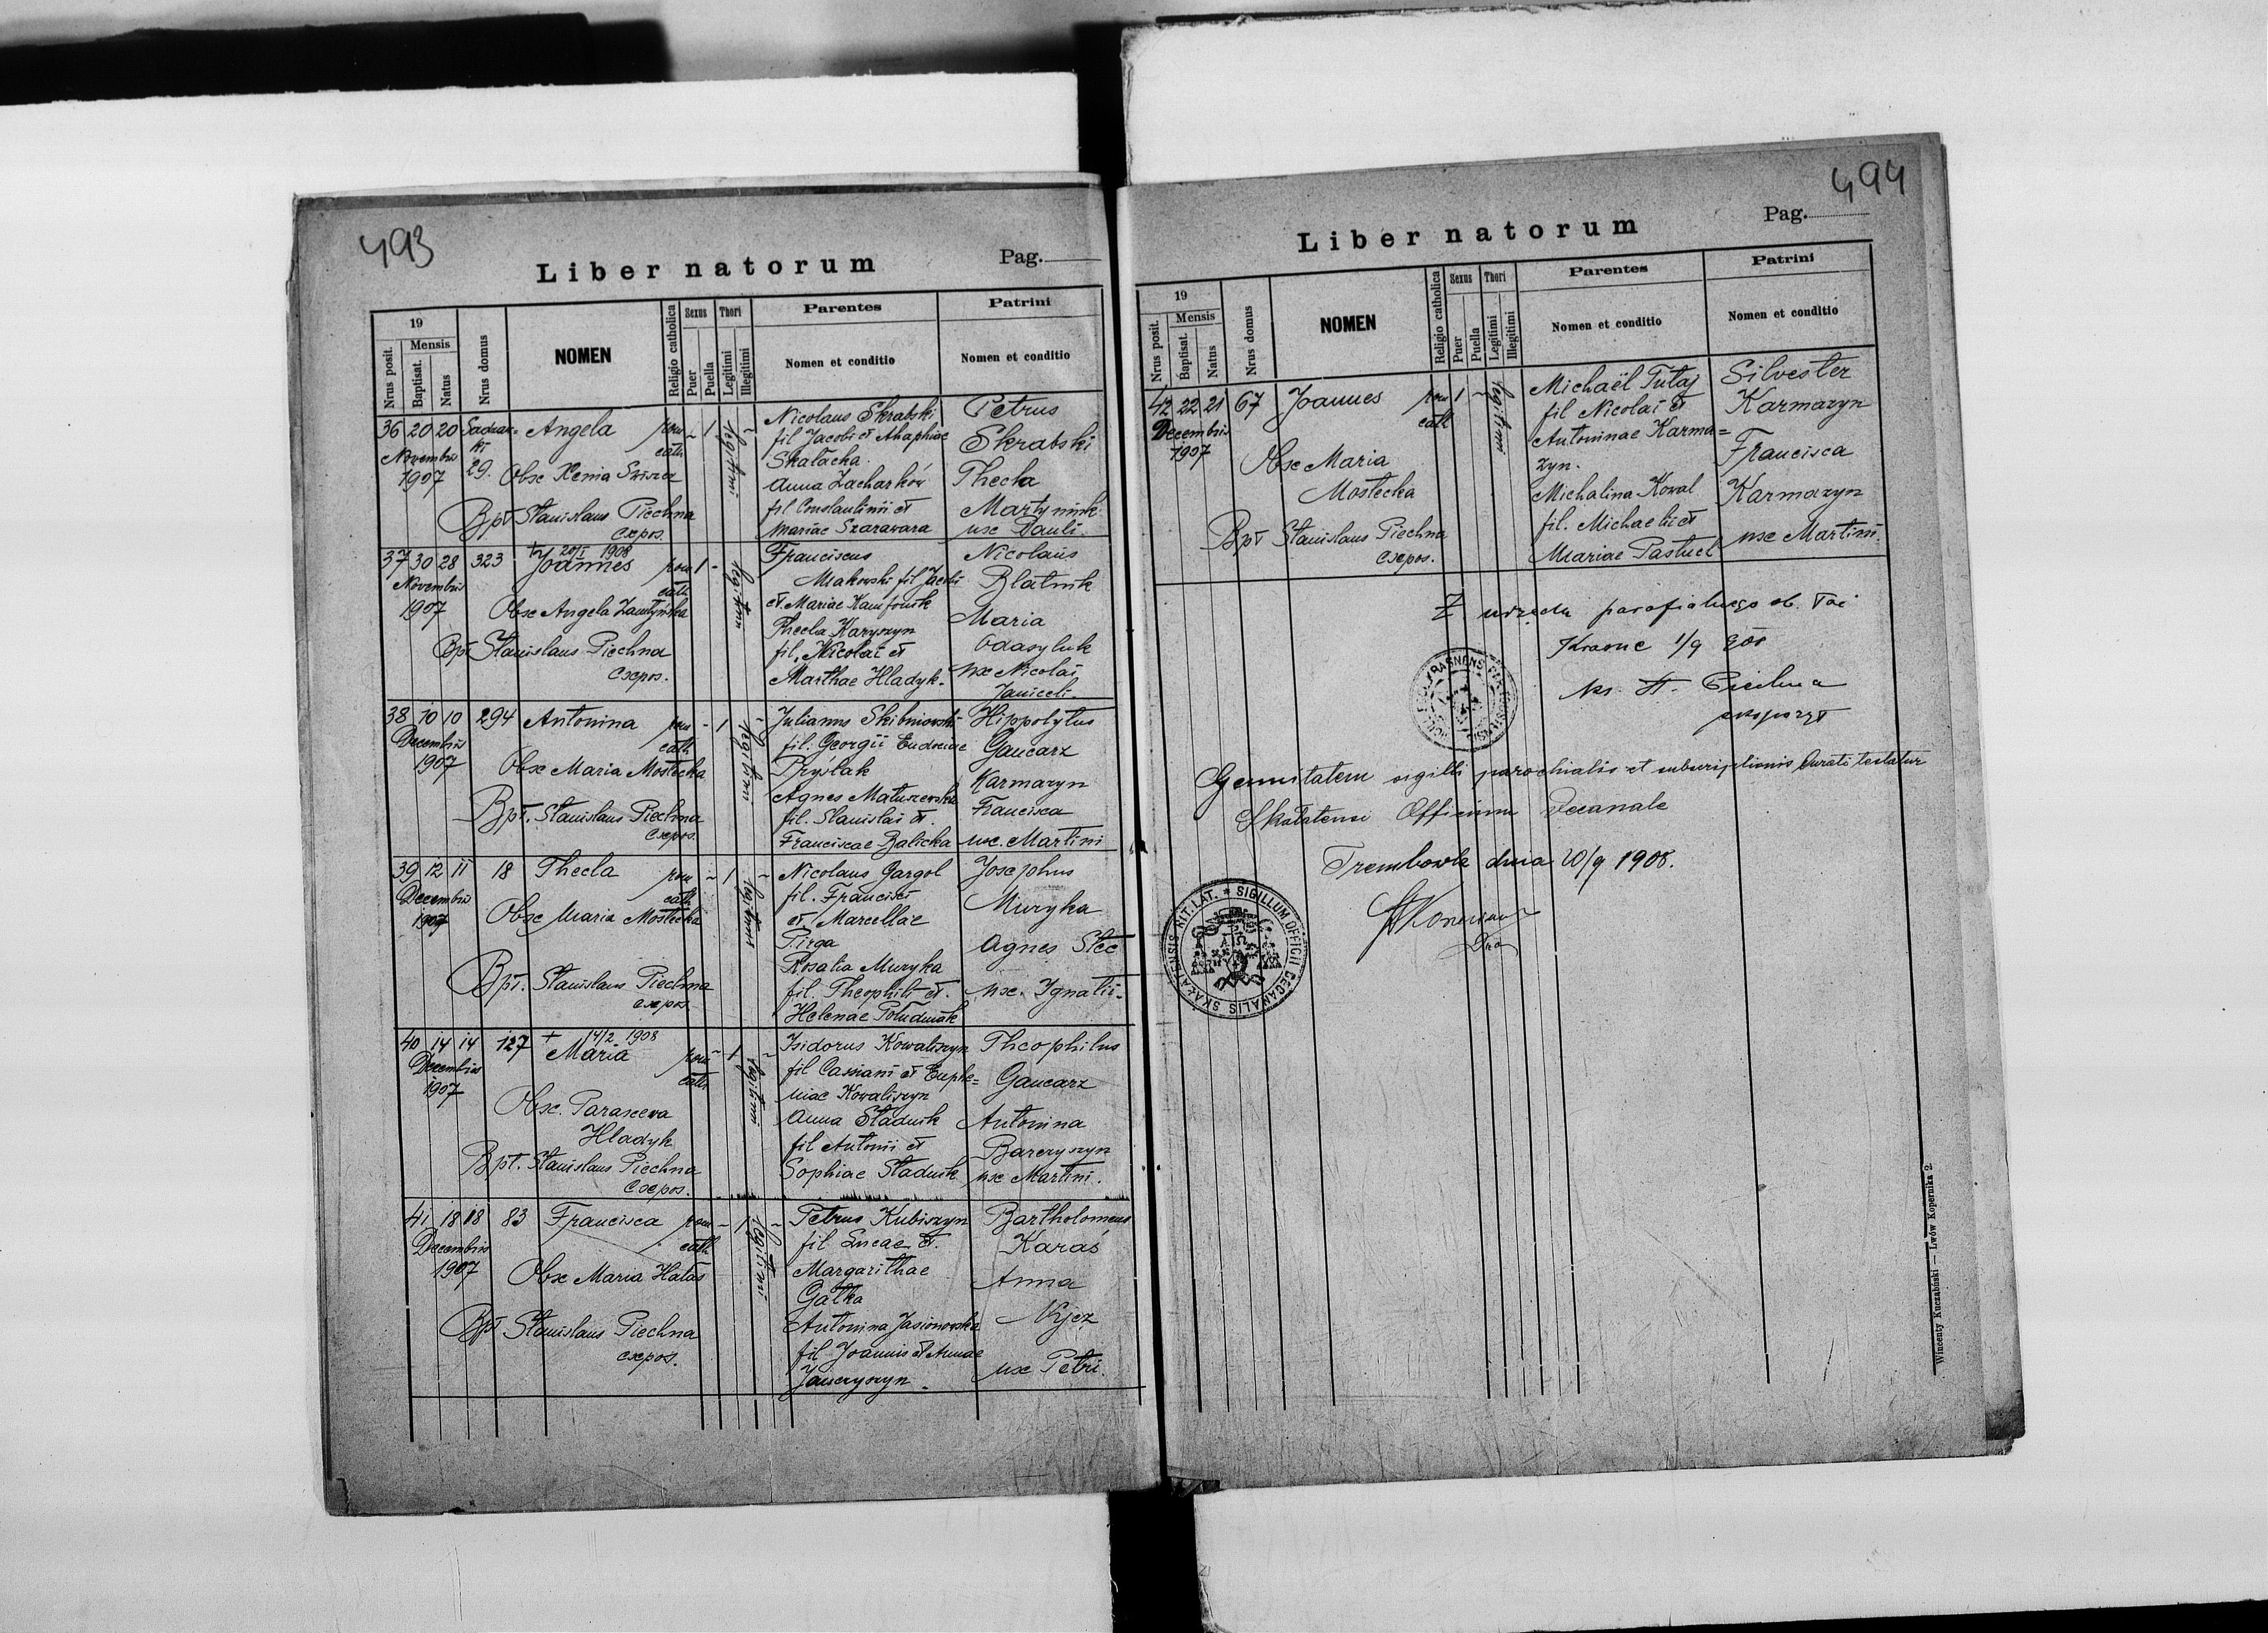 493
Liber natorum
Pag.
19
Mensis
Nrus posit.
Baptisat.
Natus
Nrus domus
NOMEN
Religio catholica
Sexus
Puer
Puella
Thori
Legitimi
Illegitimi
Parentes
Nomen et conditio
Patrini
Nomen et conditio
36 20 20 29. Angela rom cath - 1 legitimi
Novembris
1907
Obse Xenia
Bpt Stanislaus Piechna
expos.
Nicolaus Skrabski
fil Jacobi et Ahaphiae
Skałacka
Anna Zacharków
fil Constantinii et
Mariae Szarawara
Petrus
Skrabski
Thecla
Martyniuk
uxe Pauli.
37 30 28 323 Joannes rom cath 1 - legitimi
20/I 1908
Novembris
1907
Obse Angela
Bpt Stanislaus Piechna
expos.
Franciscus
Makowski fil Jacobi
et Mariae
Thecla Karyszyn
fil. Nicolai et
Marthae Hladyk.
Nicolaus
Blatnik
Maria
uxe Nicolai
38 10 10 294 Antonina rom cath - 1 - legitimi
Decembris
1907
Obse Maria Mostecka
Bpt. Stanislaus Piechna
expos.
Julianus Skibniowski
fil. Georgii Eudociae
Pryślak
Agnes Matuszewska
fil. Stanislai et.
Franciscae Balicka
Hippolytus
Gancarz
Karmazyn
Francisca
uxe. Martini
39 12 11 18 Thecla rom cath - 1 - legitimi
Decembris
1907
Obse Maria Mostecka
Bpt. Stanislaus Piechna
expos.
Nicolaus Gargol
fil. Francisci
et. Marcellae
Pirga
Rosalia Muryka
fil. Theophili et.
Helenae Południak
Josephus
Muryka
Agnes Stec
uxe. Ignatii.
40 14 14 127 Maria rom cath - 1 - legitimi
+ 14/2 1908
Decembris
1907
Obse. Parascewa
Hladyk
Bpt. Stanislaus Piechna
expos.
Isidorus Kowaliszyn
fil Cassiani et Euphe=
miae Kowaliszyn
Anna Stadnik
fil Antonii et
Sophiae Stadnik
Theophilus
Gancarz
Antonina
Barczyszyn
uxe Martini.
41 18 18 83 Francisca rom cath - 1 - legitimi
Decembris
1907
Obse Maria Hałas
Bpt Stanislaus Piechna
expos.
Petrus Kubiszyn
fil Lucae et.
Margarithae
Gałka
Antonina Jasionowska
fil Joannis et Annae
Janczyszyn.
Bartholomeus
Karaś
Anna
uxe Petri.
494
Liber natorum
Pag.
19
Mensis
Nrus posit.
Baptisat.
Natus
Nrus domus
NOMEN
Religio catholica
Sexus
Puer
Puella
Thori
Legitimi
Illegitimi
Parentes
Nomen et conditio
Patrini
Nomen et conditio
42 22 21 67 Joannes rom cath 1 - legitimi
Decembris
1907
Obse Maria
Mostecka
Bpt Stanislaus Piechna
expos.
Michaël Tutaj
fil Nicolai et
Antoninae Karma=
zyn.
Michalina Kowal
fil. Michaelis et
Mariae Pastuch
Silvester
Karmazyn
Francisca
Karmazyn
uxe Martini.
Z urzędu parafialnego ob. łać
Krasne 1/9 908
ks. St. Piechna
ekspozyt
Genuitatem sigilli parochialis et subscriptionis Curati testatur
Skałatense Officium Decanale
Trembowla dnia 20/9 1908.
SIGILLUM OFFICII DECANALIS SKAŁATENSIS RIT. LAT.
Wincenty Kuczabiński — Lwów Kopernika 2